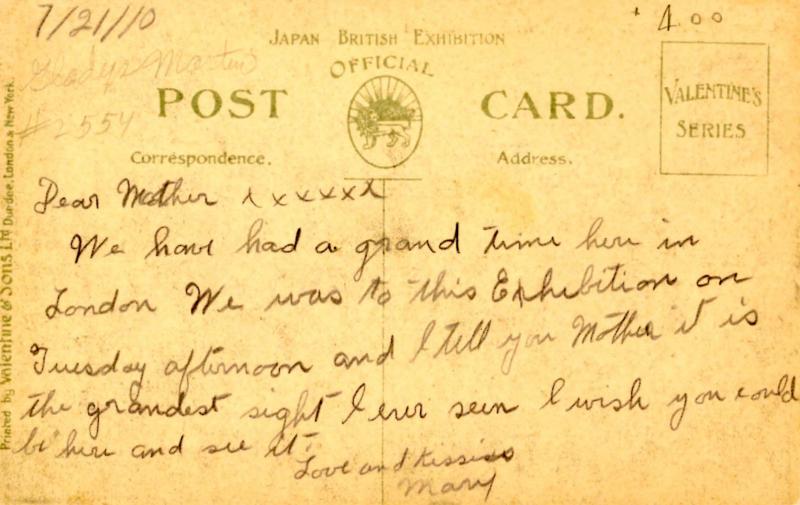 7/21/10
4.00
Gladys Martin
#2554
JAPAN BRITISH EXHIBITION
OFFICIAL
POST CARD.
VALENTINE'S
SERIES
Correspondence. Address.
Printed by Valentine & Sons Ltd Dundee, London & New York.
Dear Mother xxxxxx
We have had a grand time here in
London We was to this Exhibition on
Tuesday afternoon and I tell you Mother it is
the grandest sight I ever seen I wish you could
be here and see it.
Love and Kisses
Mary